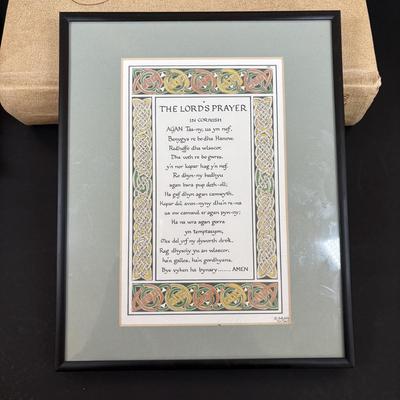 THE LORD'S PRAYER
IN CORNISH
AGAN Tas-ny, us yn nef,
Benygys re bo dha Hanow.
Redheffo dha wlascor.
Dha voth re bo gwres,
yn nor kepar hag yn nef.
Ro dhyn-ny hedhyu
agan bara pup deth-oll;
Ha gaf dhyn agan camwyth,
Kepar del aven-nyny dhe'n re-na
us ow camwul er agan pyn-ny;
Ha na wra agan gorra
yn temptasyon,
Mes delyrf ny dyworth drok.
Rag dhyso jy yu an wlascor,
ha'n gallos, ha'n gordhyans,
Bys vyken ha bynary...... AMEN